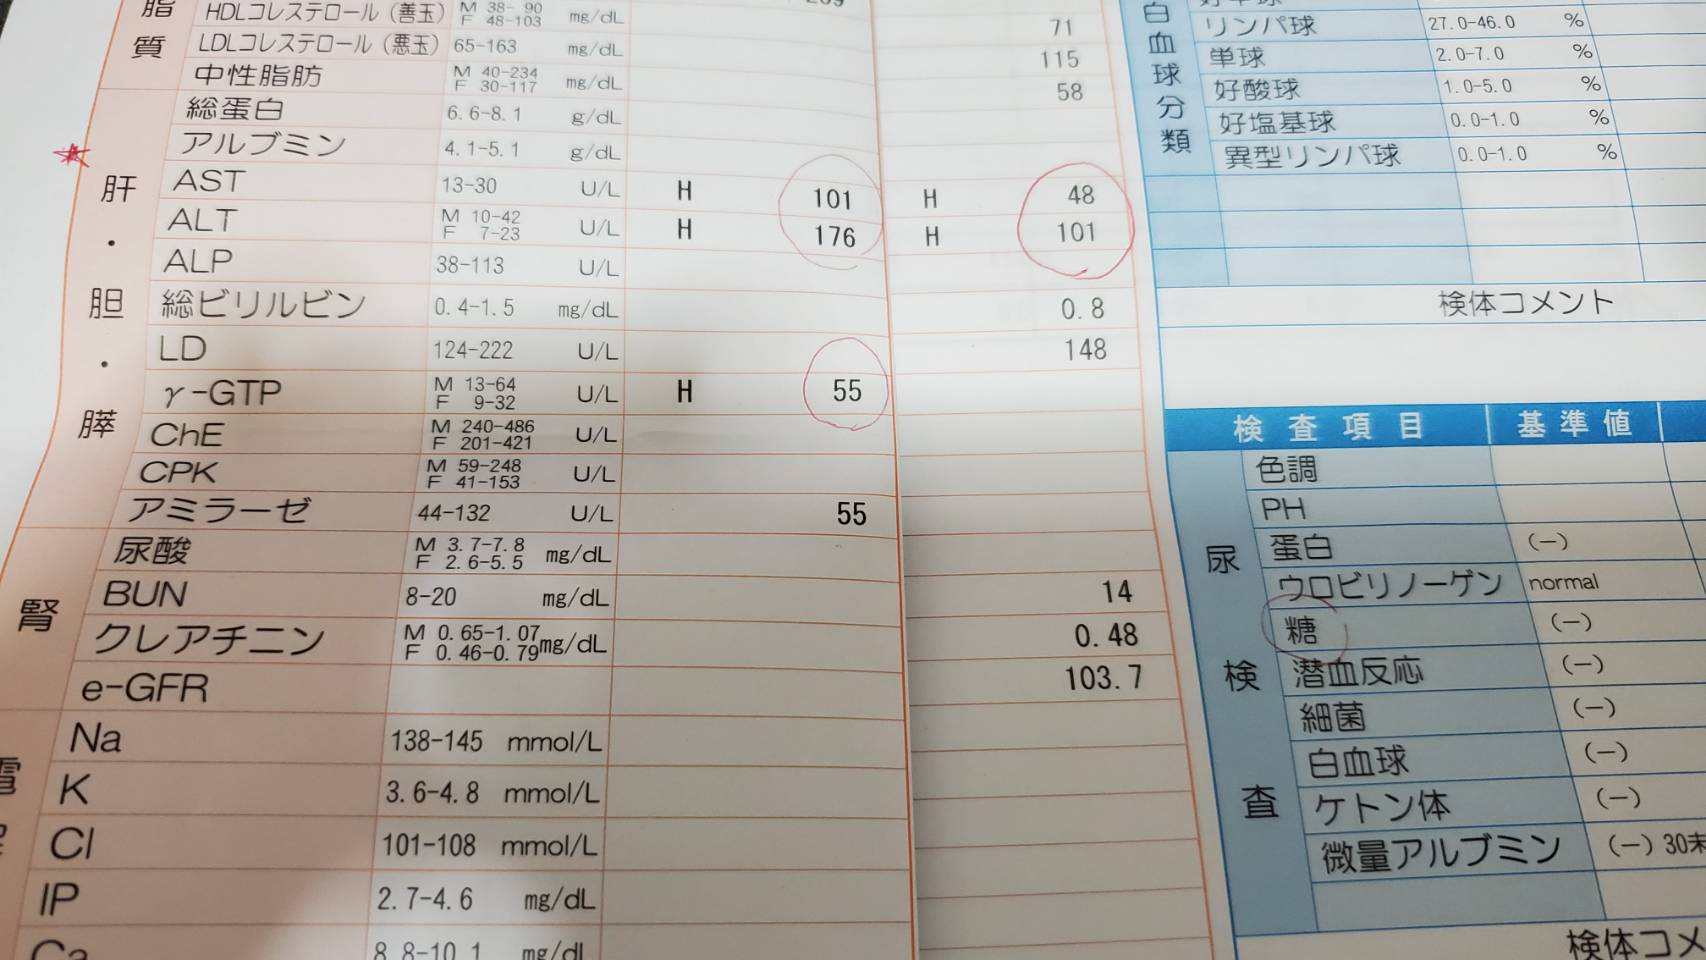 脂質
HDLコレステロール（善玉） M 38- 90 F 48-103 mg/dL 71
LDLコレステロール（悪玉） 65-163 mg/dL 115
中性脂肪 M 40-234 F 30-117 mg/dL 58
肝・胆・膵
総蛋白 6.6-8.1 g/dL
アルブミン 4.1-5.1 g/dL
AST 13-30 U/L H 101 H 48
ALT M 10-42 F 7-23 U/L H 176 H 101
ALP 38-113 U/L
総ビリルビン 0.4-1.5 mg/dL 0.8
LD 124-222 U/L 148
γ-GTP M 13-64 F 9-32 U/L H 55
ChE M 240-486 F 201-421 U/L
CPK M 59-248 F 41-153 U/L
アミラーゼ 44-132 U/L 55
腎
尿酸 M 3.7-7.8 F 2.6-5.5 mg/dL
BUN 8-20 mg/dL 14
クレアチニン M 0.65-1.07 F 0.46-0.79 mg/dL 0.48
e-GFR 103.7
Na 138-145 mmol/L
K 3.6-4.8 mmol/L
Cl 101-108 mmol/L
IP 2.7-4.6 mg/dL
Ca 8.8-10.1 mg/dL
白血球分類
リンパ球 27.0-46.0 %
単球 2.0-7.0 %
好酸球 1.0-5.0 %
好塩基球 0.0-1.0 %
異型リンパ球 0.0-1.0 %
検体コメント
検査項目 基準値
尿検査
色調
PH
蛋白 (-)
ウロビリノーゲン normal
糖 (-)
潜血反応 (-)
細菌 (-)
白血球 (-)
ケトン体 (-)
微量アルブミン (-) 30未
検体コメ